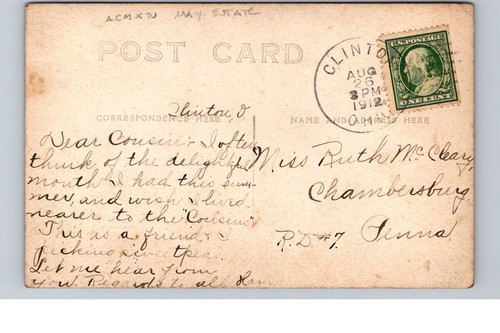 ACMXTV MAY ESTATE
POST CARD
CLINTON
AUG
26
3 PM
1912
U.S. POSTAGE
ONE CENT
CORRESPONDENCE HERE
NAME AND ADDRESS HERE
Clinton, O.
Dear Cousin:- I often
think of the delightful
month I had this sum-
mer, and wish I lived
nearer to the "Cousins"
This is a friend & I
picking sweetpeas.
Let me hear from
you. Regards to all
Miss Ruth McCleary
Chambersburg
R.D #7. Penna